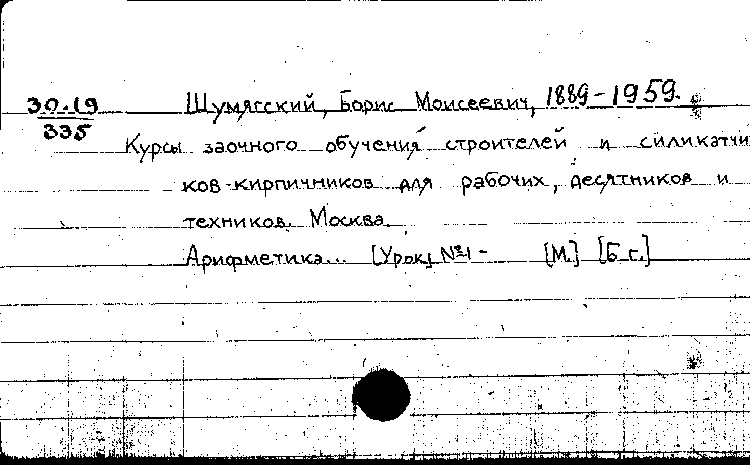 30.19 Шумягский, Борис Моисеевич, 1889-1959.
335
Курсы заочного обучения строителей и силикатчи-
ков-кирпичников для рабочих, десятников и
техников. Москва.
Арифметика... [Урок] №1 - [М.] [Б.г.]